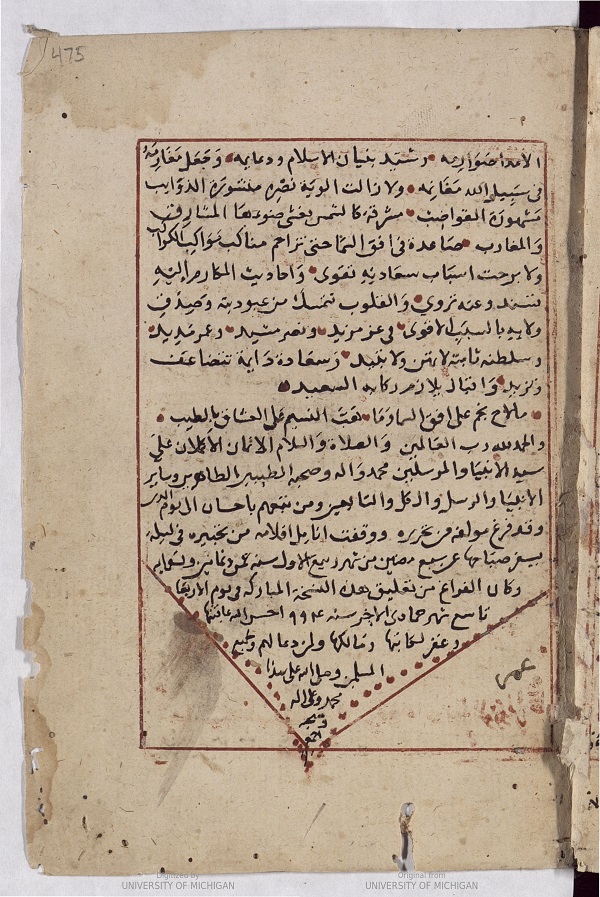 475
الاعدا صوارمه وشيد بنيان الاسلام ودعايمه وجعل مقاومة
في سبيل الله مغانمه ولا زالت الوية نصره منشورة الذوايب
مشهورة القواضب مشرقة كالشمس يغشى ضوءها المشارق
والمغارب صاعدة في افق السما حتى تزاحم مناكب الكواكب
ولا برحت اسباب سعادته تقوى واحاديث المكارم اليه
تسند وعنه تروى والقلوب تتمسك من عبوديته وصدق
ولايه بالسبب الاقوى في عز مزيد ونصر مشيد وعمر مديد
وسلطنة ثابتة لا تهن ولا تبيد وسعادة دايمة تتضاعف
وتزيد واقبال يلازم ركابه السعيد
ما لاح نجم على افق السما وما هبت النسيم على العشاق بالطيب
والحمد لله رب العالمين والصلاة والسلام الاتمان الاكملان على
سيد الانبيا والمرسلين محمد واله وصحبه الطيبين الطاهرين وساير
الانبيا والرسل وال كل والتابعين ومن تبعهم باحسان الى يوم الدين
وقد فرغ مولفه من تحريره ووقفت انامل اقلامه من تحبيره في ليلة
يسفر صباحها عن سبع مضين من شهر ربيع الاول سنة
وكان الفراغ من تعليق هذه النسخة المباركة في يوم الاربعا
تاسع شهر جمادى الاخر سنة ٩٩٤ احسن الله عاقبتها
وغفر لكاتبها ومالكها ولمن دعا لهم ولجميع
المسلمين وصلى الله على سيدنا
محمد وعلى اله
وصحبه
اجمعين
Digitized by
UNIVERSITY OF MICHIGAN
Original from
UNIVERSITY OF MICHIGAN